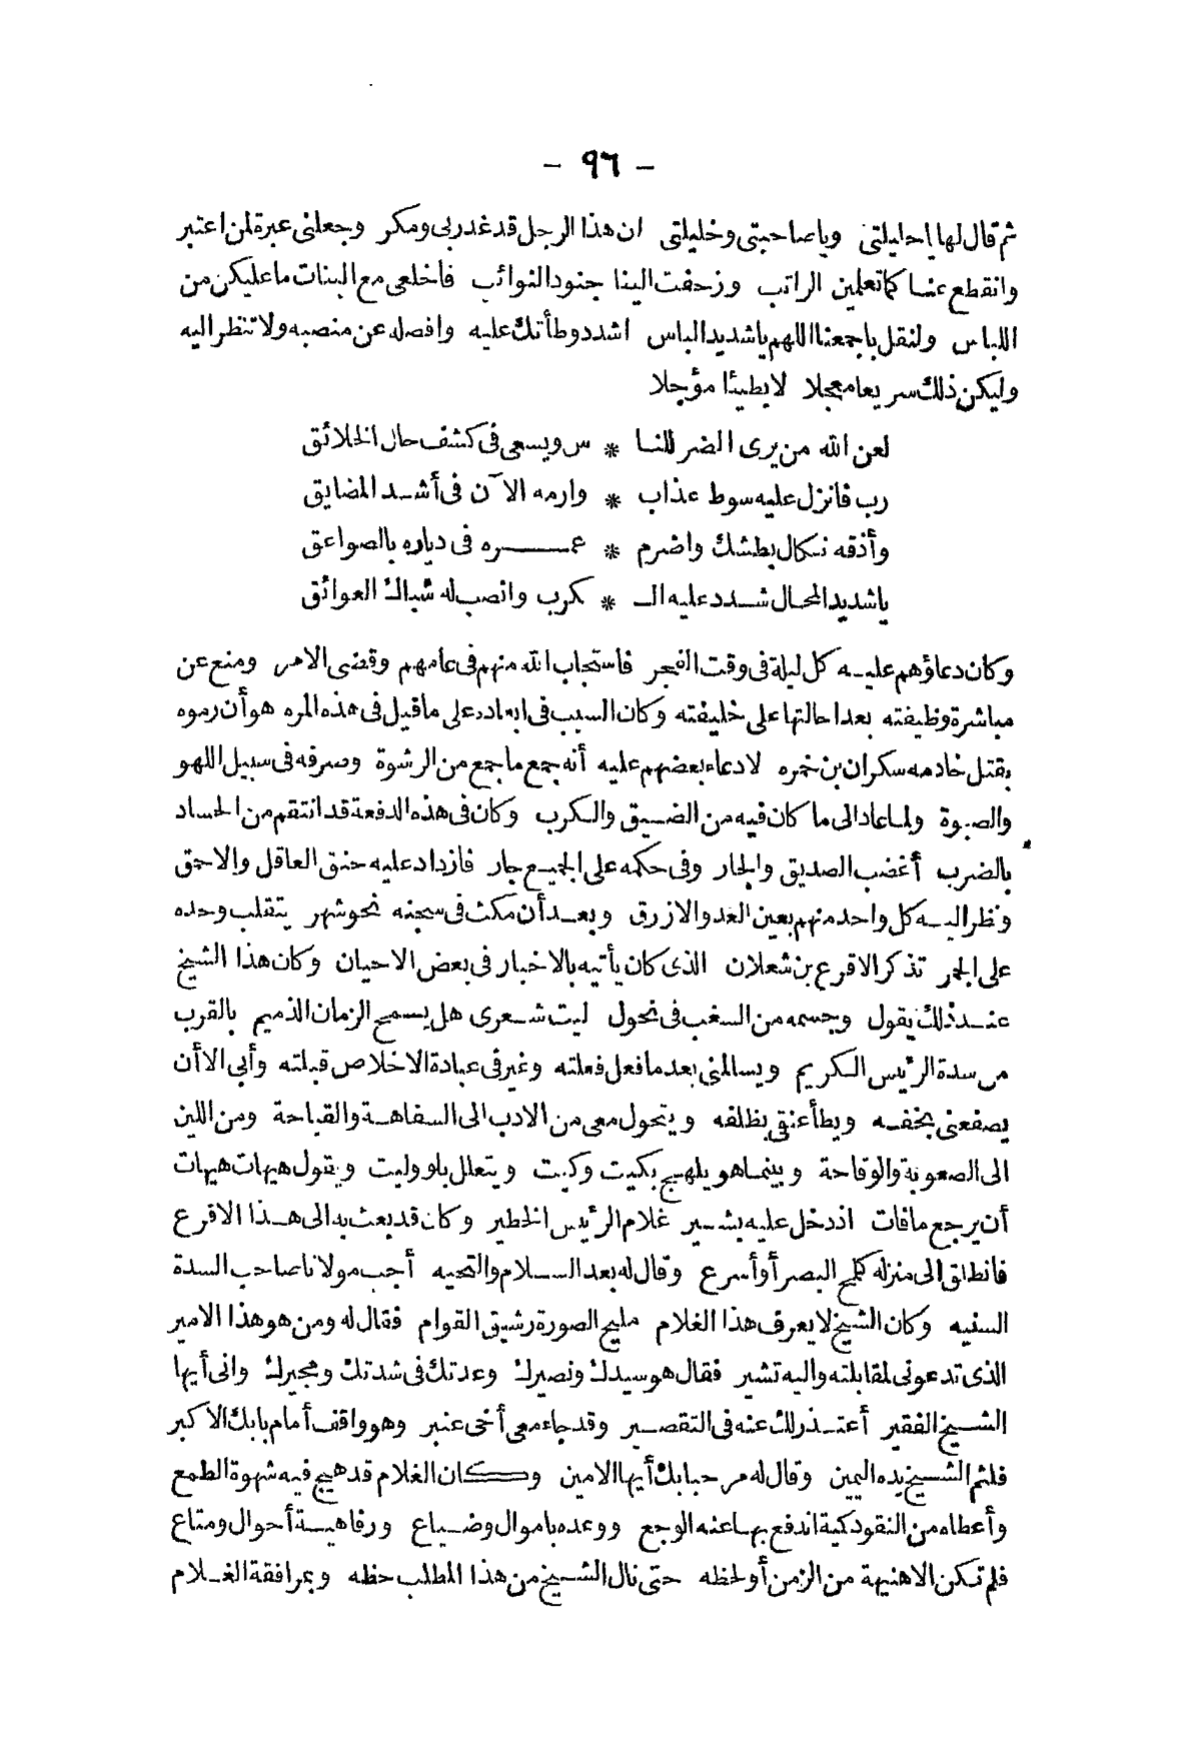 - ٩٦ -
ثم قال لها ياحليلتى وياصاحبتى وخليلتى ان هذا الرجل قد غدر بى ومكر وجعلنى عبرة لمن اعتبر
وانقطع عنا كما تعلمين الراتب وزحفت الينا جنود النوائب فاخلعى مع البنات ما عليكن من
اللباس ولنقل باجمعنا اللهم ياشديد الباس اشدد وطأتك عليه وافصله عن منصبه ولا تنظر اليه
وليكن ذلك سريعا معجلا لا بطيئا مؤجلا
لعن الله من يرى الضر للنا * س ويسعى فى كشف حال الخلائق
رب فانزل عليه سوط عذاب * وارمه الآن فى أشد المضايق
وأذقه نكال بطشك واضرم * عمره فى دياره بالصواعق
ياشديد المحال شدد عليه الـ * كرب وانصب له شباك العوائق
وكان دعاؤهم عليه كل ليلة فى وقت الفجر فاستجاب الله منهم فى عامهم وقضى الامر ومنع عن
مباشرة وظيفته بعد احالتها على خليفته وكان السبب فى ابعاده على ماقيل فى هذه المره هو أن رموه
بقتل خادمه سكران بن خمره لادعاء بعضهم عليه أنه جمع ما جمع من الرشوة وصرفه فى سبيل اللهو
والصبوة ولما عاد الى ما كان فيه من الضيق والكرب وكان فى هذه الدفعة قد انتقم من الحساد
بالضرب أغضب الصديق والجار وفى حكمه على الجميع جار فازداد عليه حنق العاقل والاحمق
ونظر اليه كل واحد منهم بعين العدو الازرق وبعد أن مكث فى سجنه نحو شهر يتقلب وحده
على الجمر تذكر الاقرع بن شعلان الذى كان يأتيه بالاخبار فى بعض الاحيان وكان هذا الشيخ
عند ذلك يقول وجسمه من السغب فى نحول ليت شعرى هل يسمح الزمان الذميم بالقرب
من سدة الرئيس الكريم ويسالمنى بعد ما فعل فعلته وغير فى عبادة الاخلاص قبلته وأبى الا أن
يصفعنى بخفه ويطأ عنقى بظلفه ويتحول معى من الادب الى السفاهة والقباحة ومن اللين
الى الصعوبة والوقاحة وبينما هو يلهج بكيت وكيت ويتعلل باو وليت ويقول هيهات هيهات
أن يرجع مافات اذ دخل عليه بشير غلام الرئيس الخطير وكان قد بعث به الى هذا الاقرع
فانطلق الى منزله كلمح البصر أو أسرع وقال له بعد السلام والتحيه أجب مولانا صاحب السدة
السنيه وكان الشيخ لا يعرف هذا الغلام مليح الصورة رشيق القوام فقال له ومن هو هذا الامير
الذى تدعونى لمقابلته واليه تشير فقال هو سيدك ونصيرك وعدتك فى شدتك ومجيرك وانى أيها
الشيخ الفقير أعتذر لك عنه فى التقصير وقد جاء معى أخى عنبر وهو واقف أمام بابك الاكبر
فلثم الشيخ يده اليمين وقال له مرحبا بك أيها الامين وكان الغلام قد هيج فيه شهوة الطمع
وأعطاه من النقود كمية اندفع بها عنه الوجع ووعده باموال وضياع ورفاهية أحوال ومتاع
فلم تكن الا هنيهة من الزمن أو لحظه حتى نال الشيخ من هذا المطلب حظه وبمرافقة الغلام